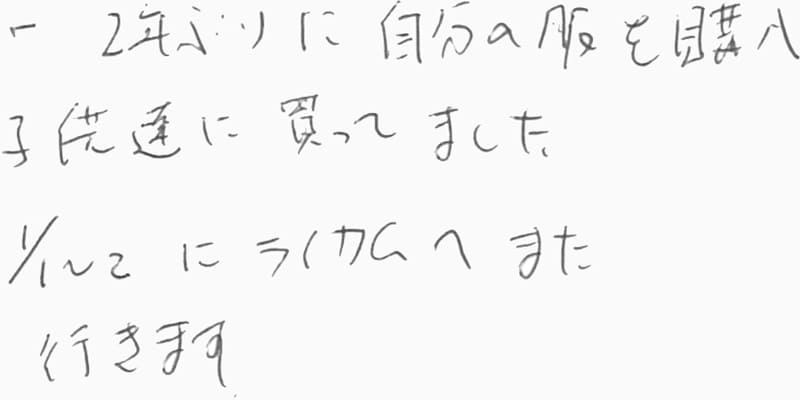 ー 2年ぶりに自分の服を購入
子供達に買ってました
1/1~2 にライカムへまた
行きます